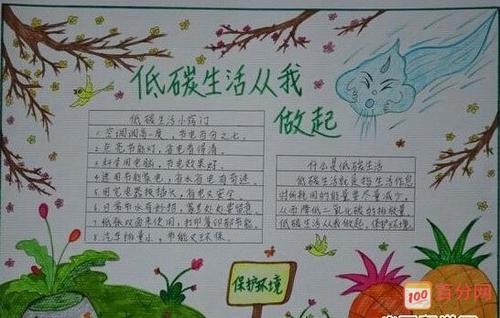 低碳生活从我
做起
低碳生活小窍门
1.空调调高一度，节电百分之七。
2.在亮节能灯，省电看得清。
3.科学用电脑，节电效果好。
5.用完电器拔插头，省电又安全
6.日常节水有妙招，
7.纸张双面使用，
8.汽车排量小，节能又环保。
什么是低碳生活
低碳生活就是指生活作息
时所耗用的能量要尽量减少，
从而降低二氧化碳的排放量。
低碳生活从我做起，保护环境。
保护环境
100
百分网